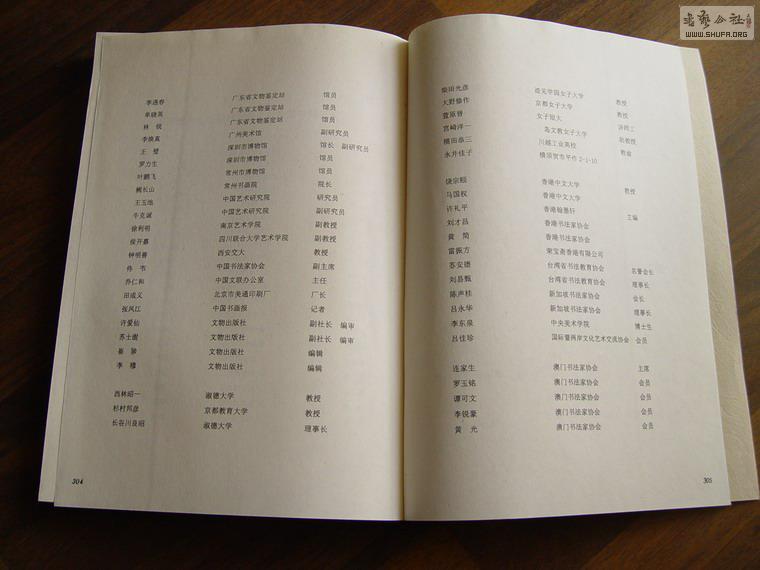 书艺公社
WWW.SHUFA.ORG
李遇春 广东省文物鉴定站 馆员
单晓英 广东省文物鉴定站 馆员
林锐 广东省文物鉴定站 馆员
李焕真 广州美术馆 副研究员
王璧 深圳市博物馆 馆长 副研究员
罗力生 深圳市博物馆 馆员
叶鹏飞 常州市博物馆 馆员
阙长山 常州书画院 院长
王玉池 中国艺术研究院 研究员
牛克诚 中国艺术研究院 副研究员
徐利明 南京艺术学院 副教授
侯开嘉 四川联合大学艺术学院 副教授
钟明善 西安交大 教授
佟韦 中国书法家协会 副主席
乔仁和 中国文联办公室 主任
田成义 北京市美通印刷厂 厂长
张凤江 中国书画报 记者
许爱仙 文物出版社 副社长 编审
苏士澍 文物出版社 副社长 编审
崔陟 文物出版社 编辑
李穆 文物出版社 编辑
西林昭一 淑德大学 教授
杉村邦彦 京都教育大学 教授
长谷川良昭 淑德大学 理事长
304
柴田光彦 迹见学园女子大学 教授
大野修作 京都女子大学 教授
萱原晋 女子短大
宫崎洋一 岛文教女子大学 助教授
横田恭三 川越工业高校 教谕
永井佳子 横须贺市平作2-1-10
饶宗颐 香港中文大学 教授
马国权 香港中文大学
许礼平 香港翰墨轩 主编
刘才昌 香港书法家协会
黄简 香港书法家协会
雷振方 荣宝斋香港有限公司
苏安德 台湾省书法教育协会 名誉会长
刘县甄 台湾省书法教育协会 理事长
陈声桂 新加坡书法家协会 会长
吕永华 新加坡书法家协会 理事长
李东泉 中央美术学院 博士生
吕佳珍 国际暨两岸文化艺术交流协会 会员
连家生 澳门书法家协会 主席
罗玉铭 澳门书法家协会 会员
谭可文 澳门书法家协会 会员
李锐豪 澳门书法家协会 会员
黄光 澳门书法家协会 会员
305